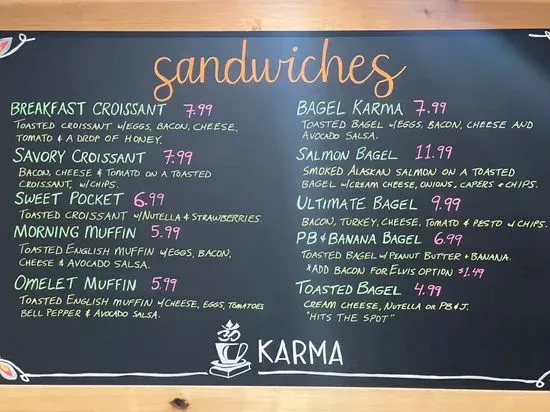 sandwiches
BREAKFAST CROISSANT 7.99
TOASTED CROISSANT W/EGGS, BACON, CHEESE,
TOMATO & A DROP OF HONEY.
SAVORY CROISSANT 7.99
BACON, CHEESE & TOMATO ON A TOASTED
CROISSANT, W/CHIPS.
SWEET POCKET 6.99
TOASTED CROISSANT W/NUTELLA & STRAWBERRIES.
MORNING MUFFIN 5.99
TOASTED ENGLISH MUFFIN W/EGGS, BACON,
CHEESE & AVOCADO SALSA.
OMELET MUFFIN 5.99
TOASTED ENGLISH MUFFIN W/CHEESE, EGGS, TOMATOES
BELL PEPPER & AVOCADO SALSA.
BAGEL KARMA 7.99
TOASTED BAGEL W/EGGS, BACON, CHEESE AND
AVOCADO SALSA.
SALMON BAGEL 11.99
SMOKED ALASKAN SALMON ON A TOASTED
BAGEL W/CREAM CHEESE, ONIONS, CAPERS & CHIPS.
ULTIMATE BAGEL 9.99
BACON, TURKEY, CHEESE, TOMATO & PESTO W/CHIPS.
PB & BANANA BAGEL 6.99
TOASTED BAGEL W/PEANUT BUTTER & BANANA.
*ADD BACON FOR ELVIS OPTION $1.49
TOASTED BAGEL 4.99
CREAM CHEESE, NUTELLA OR PB & J.
"HITS THE SPOT"
ॐ
KARMA